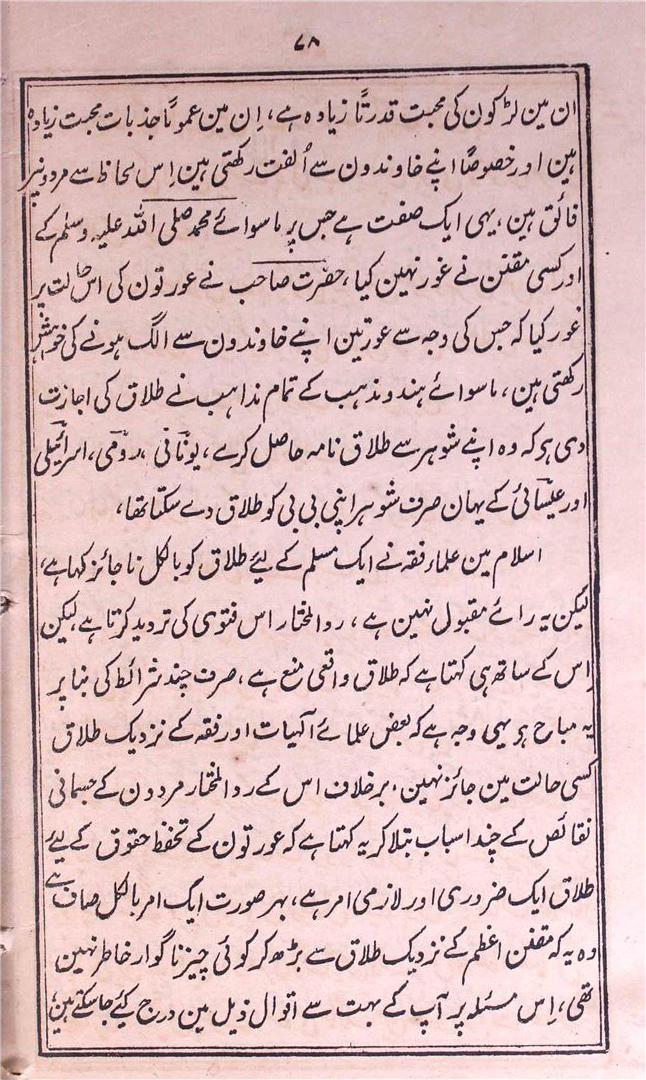 ۷۸
ان مین لڑکون کی محبت قدرتًا زیادہ ہے، اِن مین عمومًا جذبات محبت زیادہ
ہین اور خصوصًا اپنے خاوندون سے اُلفت رکھتی ہین اِس لحاظ سے مردونپر
فائق ہین، یہی ایک صفت ہے جس پر ماسوائے محمد صلی اللہ علیہ وسلم کے
اور کسی مقنن نے غور نہین کیا، حضرت صاحب نے عورتون کی اس حالت پر
غور کیا کہ جس کی وجہ سے عورتین اپنے خاوندون سے الگ ہونے کی خواہش
رکھتی ہین، ماسوائے ہندو مذہب کے تمام مذاہب نے طلاق کی اجازت
دی ہر کہ وہ اپنے شوہر سے طلاق نامہ حاصل کرے، یونانی، رومی، اسرائیلی
اور عیسائی کے یہان صرف شوہر اپنی بی بی کو طلاق دے سکتا تھا،
اسلام مین علماء فقہ نے ایک مسلم کے لیے طلاق کو بالکل ناجائز کہا ہے،
لیکن یہ رائے مقبول نہین ہے، ردالمختار اس فتوی کی تردید کرتا ہے لیکن
اِس کے ساتھ ہی کہتا ہے کہ طلاق واقعی منع ہے، صرف چند شرائط کی بنا پر
یہ مباح ہر یہی وجہ ہے کہ بعض علمائے الٰہیات اور فقہ کے نزدیک طلاق
کسی حالت مین جائز نہین۔ برخلاف اس کے ردالمختار مردون کے جسمانی
نقائص کے چند اسباب بتلا کر یہ کہتا ہے کہ عورتون کے تحفظ حقوق کے لیے
طلاق ایک ضروری اور لازمی امر ہے، بہر صورت ایک امر بالکل صاف ہے
وہ یہ کہ مقنن اعظم کے نزدیک طلاق سے بڑھ کر کوئی چیز ناگوار خاطر نہین
تھی، اِس مسئلہ پر آپ کے بہت سے اقوال ذیل مین درج کیے جا سکتے ہین